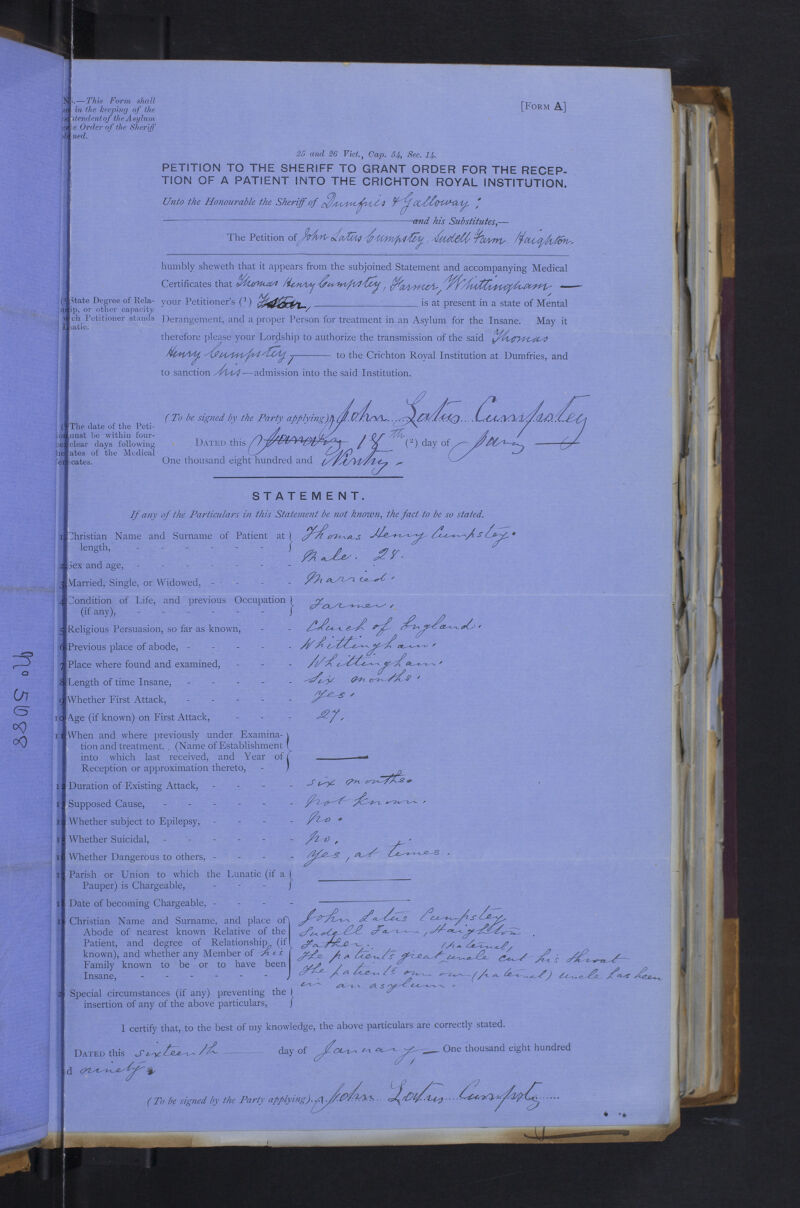 [FORM A]
.—This Form shall
in the keeping of the
tendent of the Asylum
e Order of the Sheriff
ned.
25 and 26 Vict., Cap. 54, Sec. 14.
PETITION TO THE SHERIFF TO GRANT ORDER FOR THE RECEP-
TION OF A PATIENT INTO THE CRICHTON ROYAL INSTITUTION.
Unto the Honourable the Sheriff of Dumfries & Galloway
and his Substitutes,—
The Petition of John Latus Cumpstey, Sudell Farm Haighton.
humbly sheweth that it appears from the subjoined Statement and accompanying Medical
Certificates that Thomas Henry Cumpstey, Farmer, Whittingham —
State Degree of Rela-
ip, or other capacity
ch Petitioner stands
natic.
your Petitioner's (1) is at present in a state of Mental
Derangement, and a proper Person for treatment in an Asylum for the Insane. May it
therefore please your Lordship to authorize the transmission of the said Thomas
Henry Cumpstey, to the Crichton Royal Institution at Dumfries, and
to sanction his—admission into the said Institution.
(To be signed by the Party applying) John Latus Cumpstey
The date of the Peti-
must be within four-
clear days following
ates of the Medical
cates.
DATED this January 18th (2) day of Jany
One thousand eight hundred and Ninty -
STATEMENT.
If any of the Particulars in this Statement be not known, the fact to be so stated.
Christian Name and Surname of Patient at length, - Thomas Henry Cumpstey.
Sex and age, - Male. 28.
Married, Single, or Widowed, - Married.
Condition of Life, and previous Occupation (if any), - Farmer.
Religious Persuasion, so far as known, - Church of England.
Previous place of abode, - Whittingham.
Place where found and examined, - Whittingham.
Length of time Insane, - Six months.
Whether First Attack, - Yes.
Age (if known) on First Attack, - 27.
When and where previously under Examina-
tion and treatment. (Name of Establishment
into which last received, and Year of
Reception or approximation thereto, - —
Duration of Existing Attack, - six months.
Supposed Cause, - Not known.
Whether subject to Epilepsy, - No.
Whether Suicidal, - No.
Whether Dangerous to others, - Yes, at times.
Parish or Union to which the Lunatic (if a
Pauper) is Chargeable, - —
Date of becoming Chargeable, - —
Christian Name and Surname, and place of John Latus Cumpstey
Abode of nearest known Relative of the Sudell Farm, Haighton.
Patient, and degree of Relationship (if Father. (paternal)
known), and whether any Member of his The patient's great uncle cut his throat
Family known to be or to have been The patient's own (paternal) uncle has been
Insane, - in an asylum.
Special circumstances (if any) preventing the
insertion of any of the above particulars,
I certify that, to the best of my knowledge, the above particulars are correctly stated.
DATED this sixteenth day of January — One thousand eight hundred
d ninety
(To be signed by the Party applying), John Latus Cumpstey
No 5088